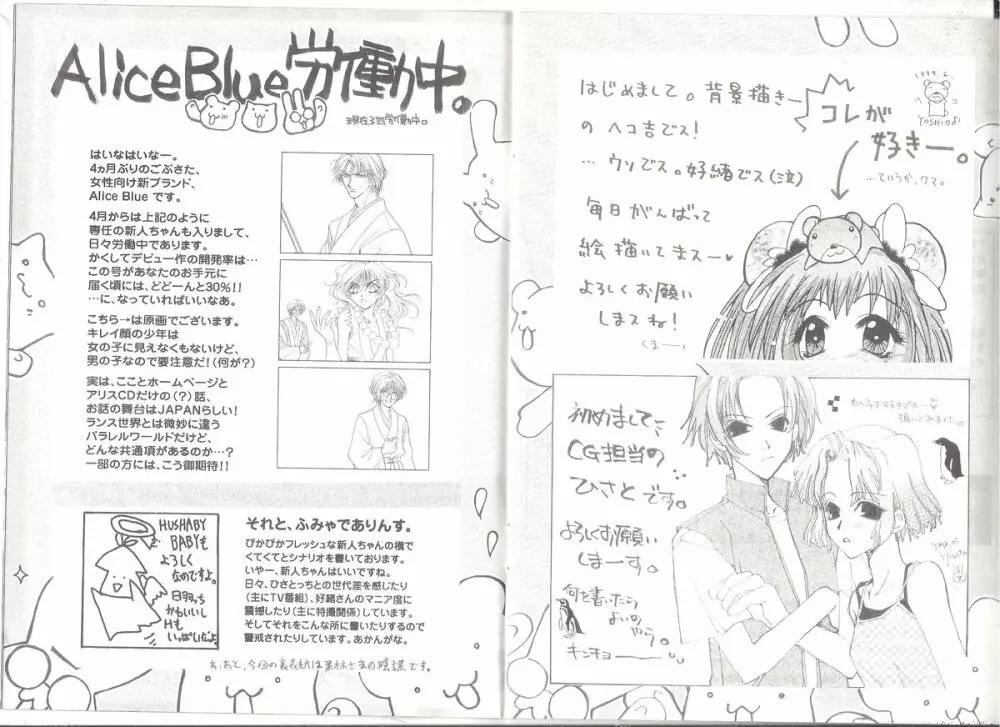 AliceBlue労働中。
現在3匹労働中。
はいなはいなー。
4ヵ月ぶりのごぶさた、
女性向け新ブランド、
Alice Blue です。
4月からは上記のように
専任の新人ちゃんも入りまして、
日々労働中であります。
かくしてデビュー作の開発率は…
この号があなたのお手元に
届く頃には、どどーんと30%!!
…に、なっていればいいなあ。
こちら→は原画でございます。
キレイ顔の少年は
女の子に見えなくもないけど、
男の子なので要注意だ!(何が?)
実は、こことホームページと
アリスCDだけの(?)話、
お話の舞台はJAPANらしい!
ランス世界とは微妙に違う
パラレルワールドだけど、
どんな共通項があるのか…?
一部の方には、こう御期待!!
HUSHABY
BABYも
よろしく
なのですよ。
日羽っち
かわいいし
Hも
いっぱいだよ。
それと、ふみゃでありんす。
ぴかぴかフレッシュな新人ちゃんの横で
くてくてとシナリオを書いております。
いやー、新人ちゃんはいいですね。
日々、ひさとっちとの世代差を感じたり
(主にTV番組)、好緒さんのマニア度に
震撼したり(主に特撮関係)しています。
そしてそれをこんな所に書いたりするので
警戒されたりしています。あかんがな。
あ、あと、今回の裏表紙は果林さまの陰謀です。
はじめまして。背景描きー
の ヘコ吉でス!
… ウソでス。好緒でス(泣)
毎日がんばって
絵描いてまスー♥
よろしくお願い
しまスね!
くまーっ
コレが
好きー。
…ていうか、クマ。
1999.6.
ヘコ
YOSHIO
初めまして、
CG担当の
ひさとです。
よろしくお願い
しまーす。
何を書いたら
よいの
やら。
キンチョーーー